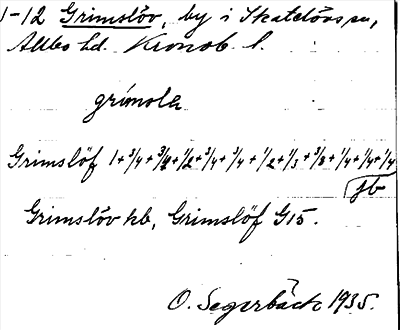 1-12 Grimslöv, by i Skatelövs sn,
Allbo hd. Kronob. l.
grímola
Grimslöf 1+3/4+3/4+1/2+3/4+3/4+1/2+1/3+3/8+1/4+1/4+1/4
jb
Grimslöv hb, Grimslöf G15.
O. Segerbäck 1935.